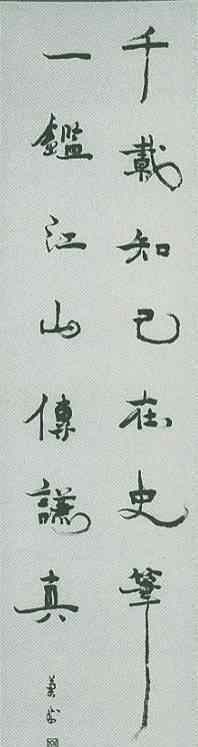 千載知己在史筆
一鑑江山傳謙真